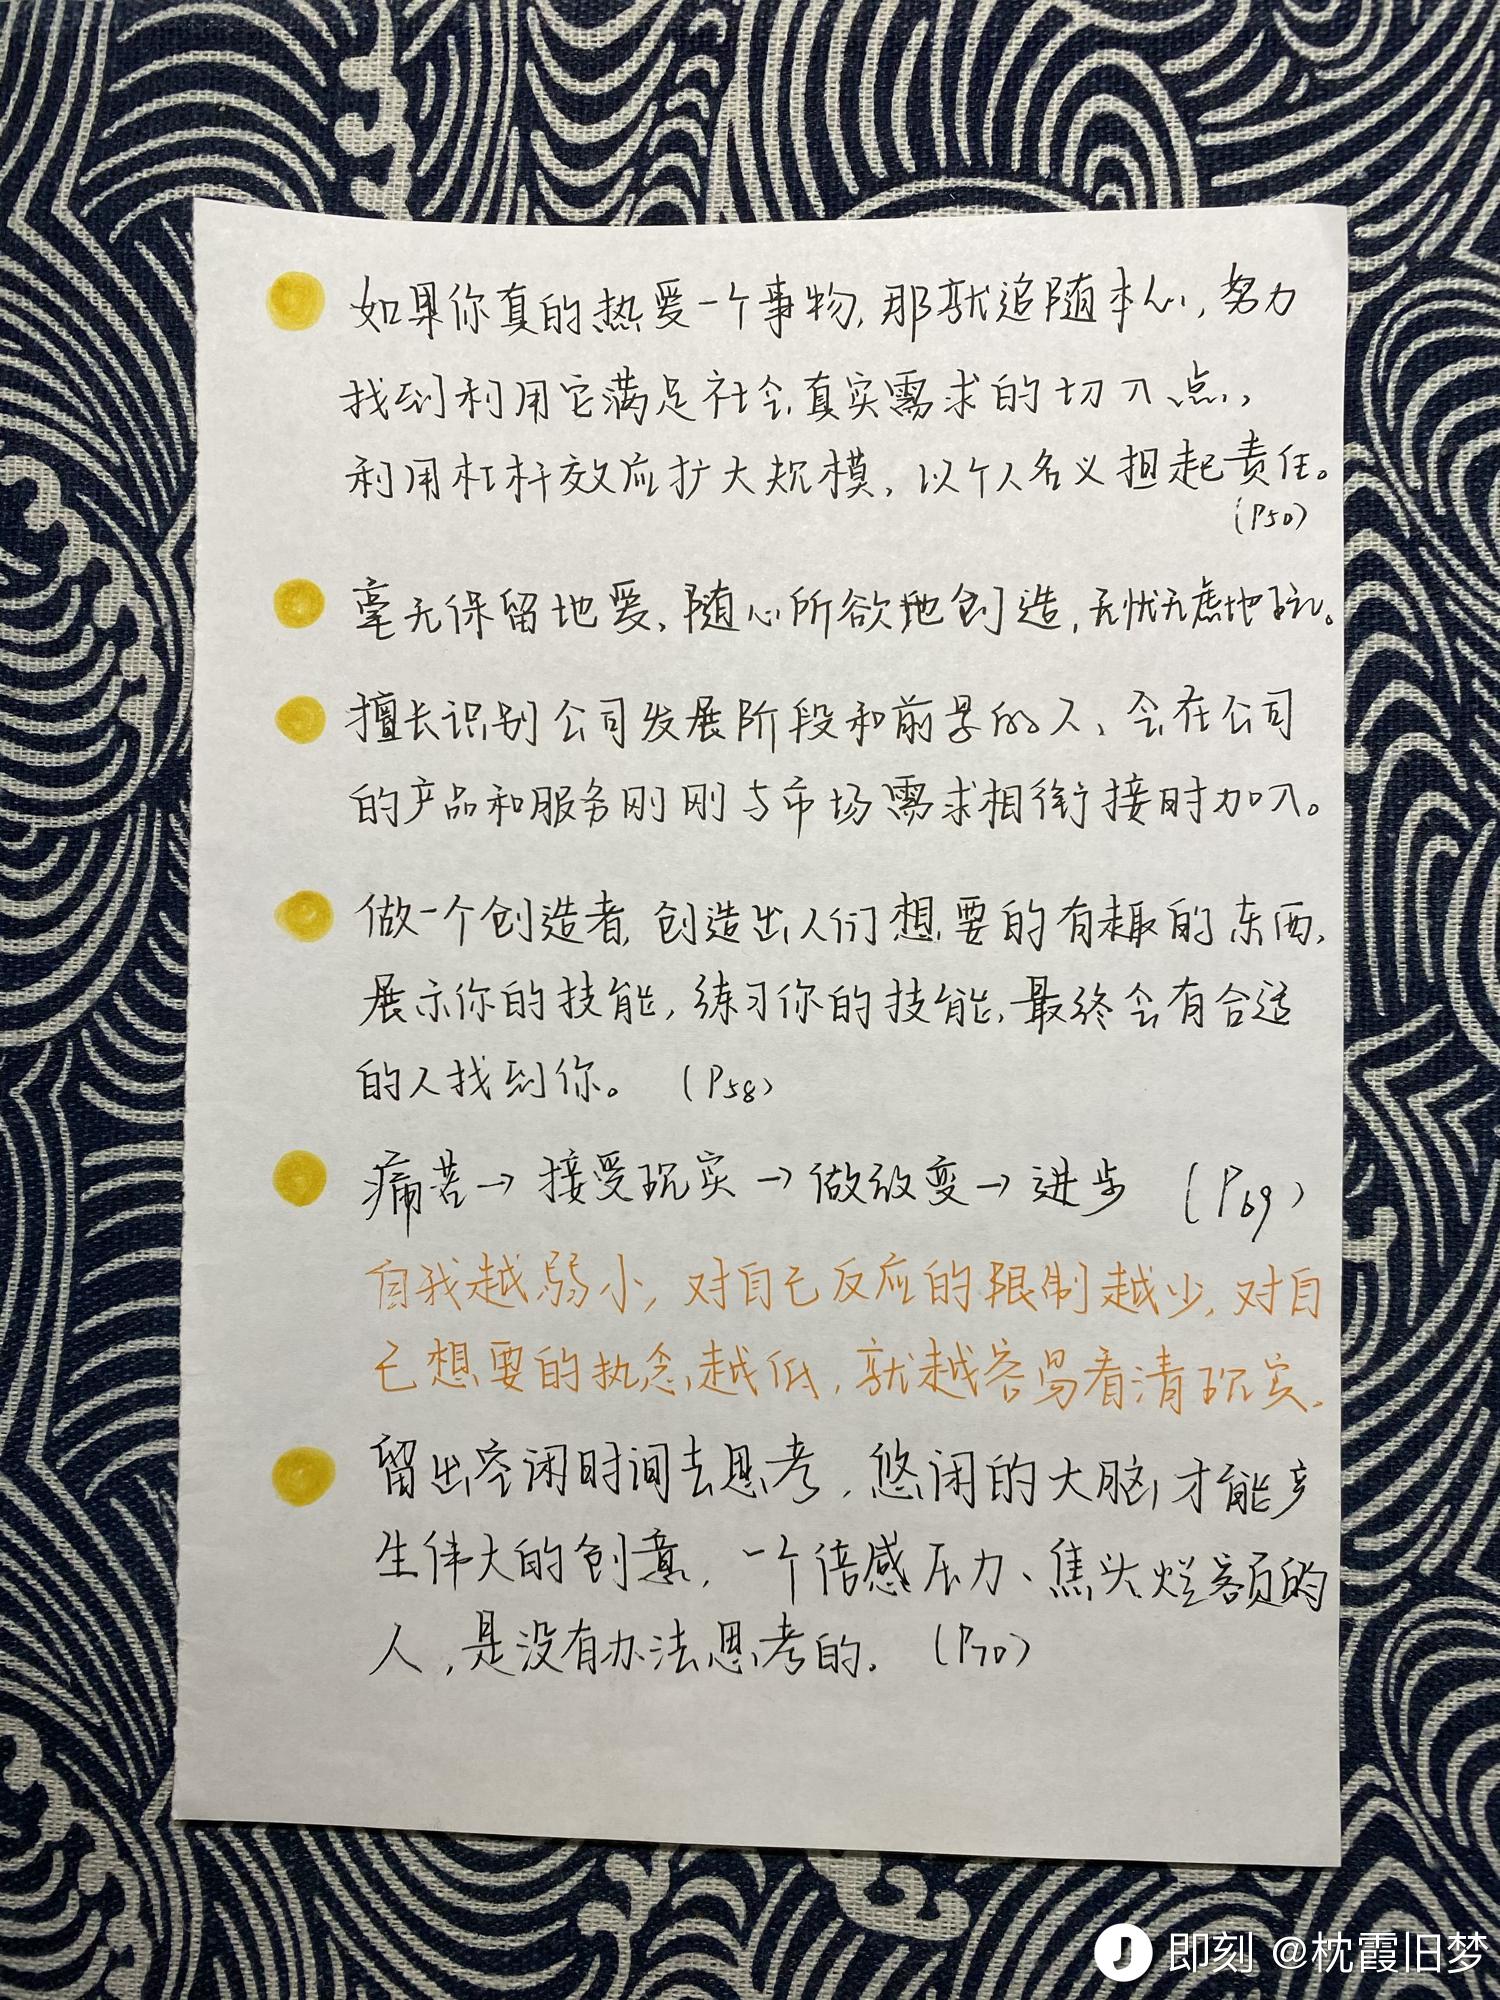 如果你真的热爱一个事物，那就追随本心，努力
找到利用它满足社会真实需求的切入点，
利用杠杆效应扩大规模，以个人名义担起责任。
(P50)
毫无保留地爱，随心所欲地创造，无忧无虑地玩。
擅长识别公司发展阶段和前景的人，会在公司
的产品和服务刚刚与市场需求相衔接时加入。
做一个创造者，创造出人们想要的有趣的东西，
展示你的技能，练习你的技能，最终会有合适
的人找到你。（P58）
痛苦→接受现实→做改变→进步（P69）
自我越弱小，对自己反应的限制越少，对自
己想要的执念越低，就越容易看清现实。
留出空闲时间去思考，悠闲的大脑才能产
生伟大的创意，一个倍感压力、焦头烂额的
人，是没有办法思考的。（P70）
即刻 @枕霞旧梦